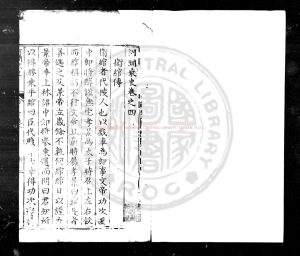 史卷之四
衛綰傳
衛綰者代大陵人也以戲車為郎事文帝功次遷
中郎將醇謹無他孝景為太子時召上左右飲
綰稱病不行文帝且崩時屬孝景曰綰長者
善遇之及景帝立歲餘不孰何綰綰日以謹力
景帝幸上林詔中郎將參乘還而問曰君知所
以得參乘乎綰曰臣代戲車士幸得功次